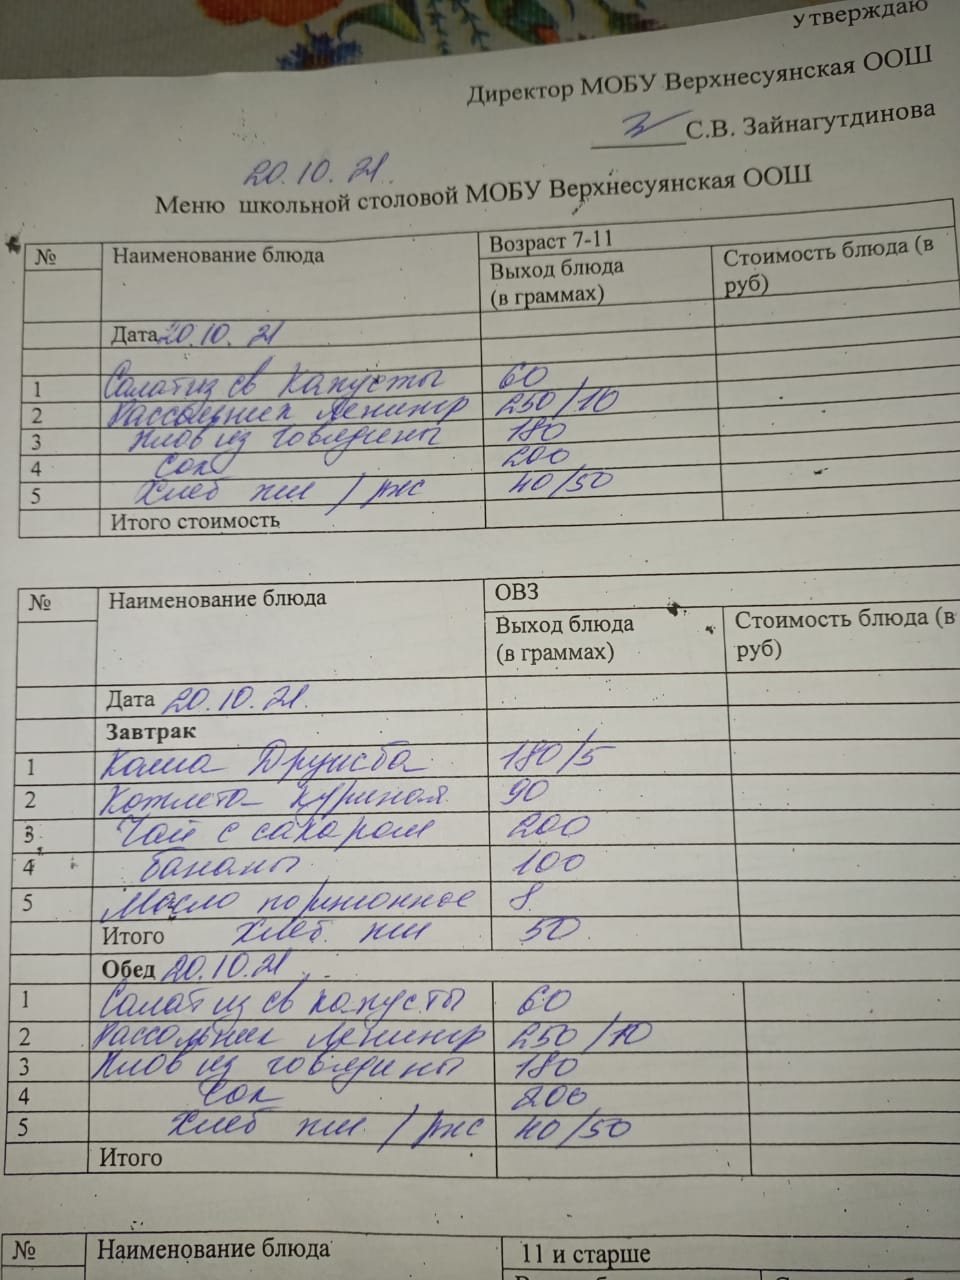 Утверждаю
Директор МОБУ Верхнесуянская ООШ
С.В. Зайнагутдинова
20.10.21.
Меню школьной столовой МОБУ Верхнесуянская ООШ
№ Наименование блюда Возраст 7-11
Выход блюда (в граммах) Стоимость блюда (в руб)
Дата 20.10.21
1 Салат из св капусты 60
2 Рассольник Ленингр 250/10
3 Плов из говядины 180
4 Сок 200
5 Хлеб пш / рж 40/50
Итого стоимость
№ Наименование блюда ОВЗ
Выход блюда (в граммах) Стоимость блюда (в руб)
Дата 20.10.21.
Завтрак
1 Каша Дружба 180/5
2 Котлета куриная 90
3 Чай с сахаром 200
4 бананы 100
5 Масло порционное 8
Итого Хлеб пш 50
Обед 20.10.21
1 Салат из св капусты 60
2 Рассольник Ленингр 250/10
3 Плов из говядины 180
4 Сок 200
5 Хлеб пш / ржс 40/50
Итого
№ Наименование блюда 11 и старше